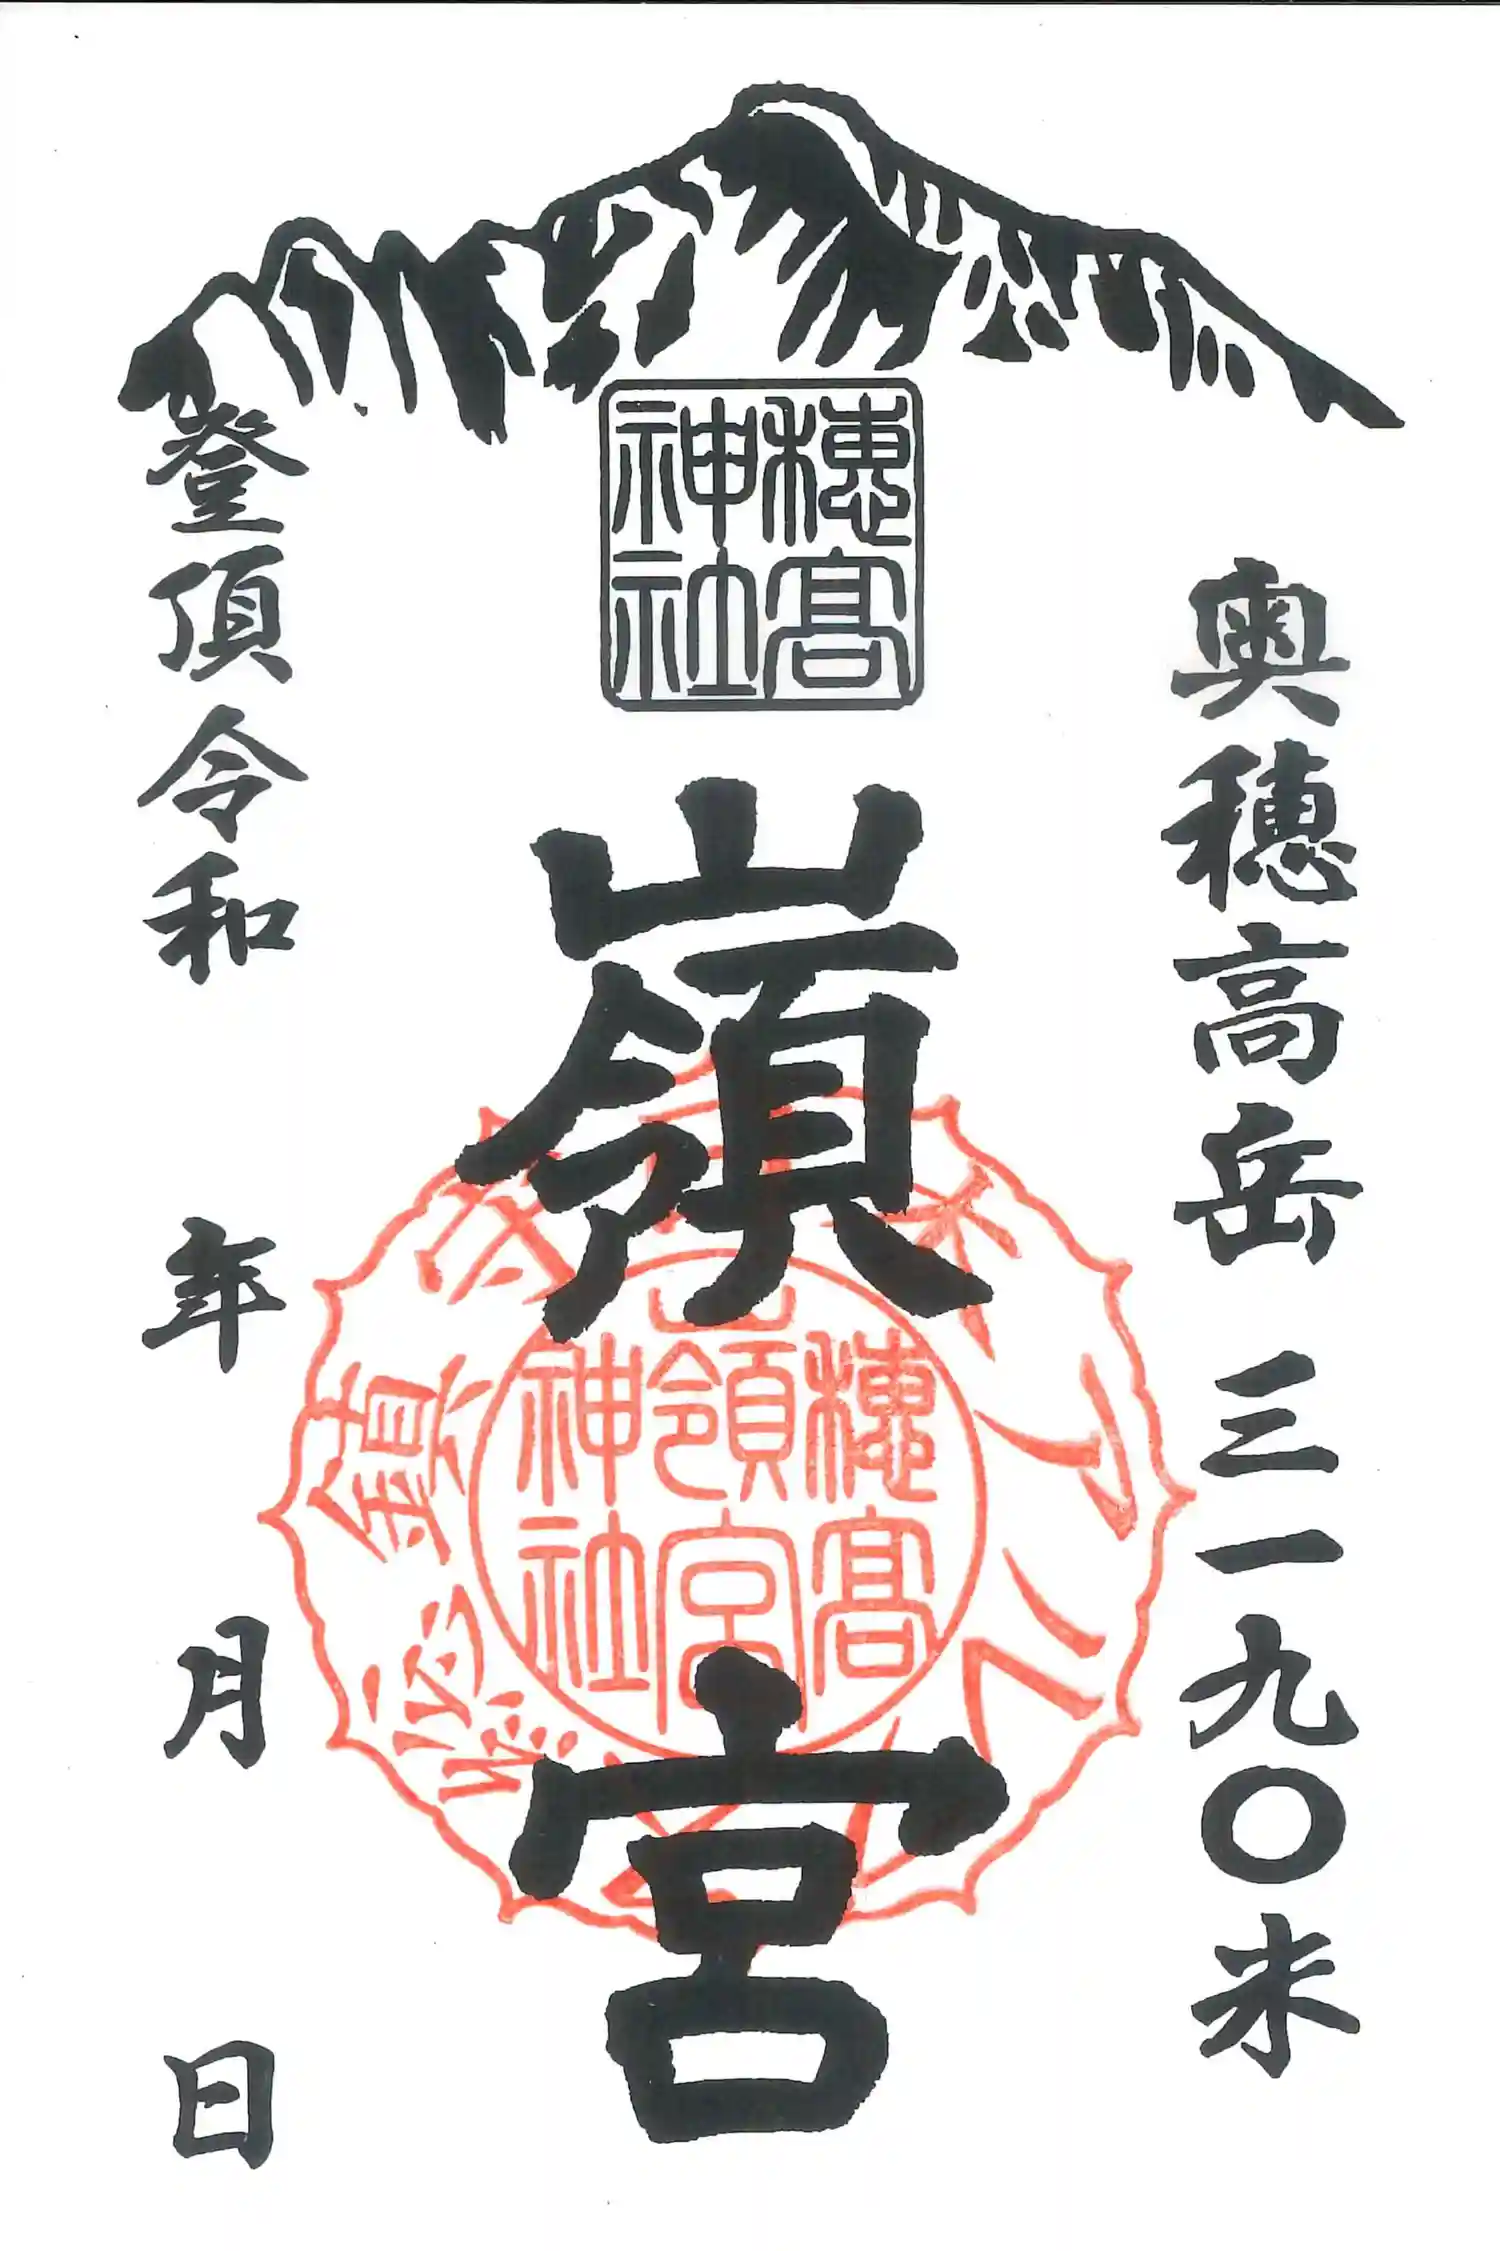 奥穂高岳 三一九〇米
穂高神社
嶺宮
穂高嶺宮神社
登頂令和 年 月 日